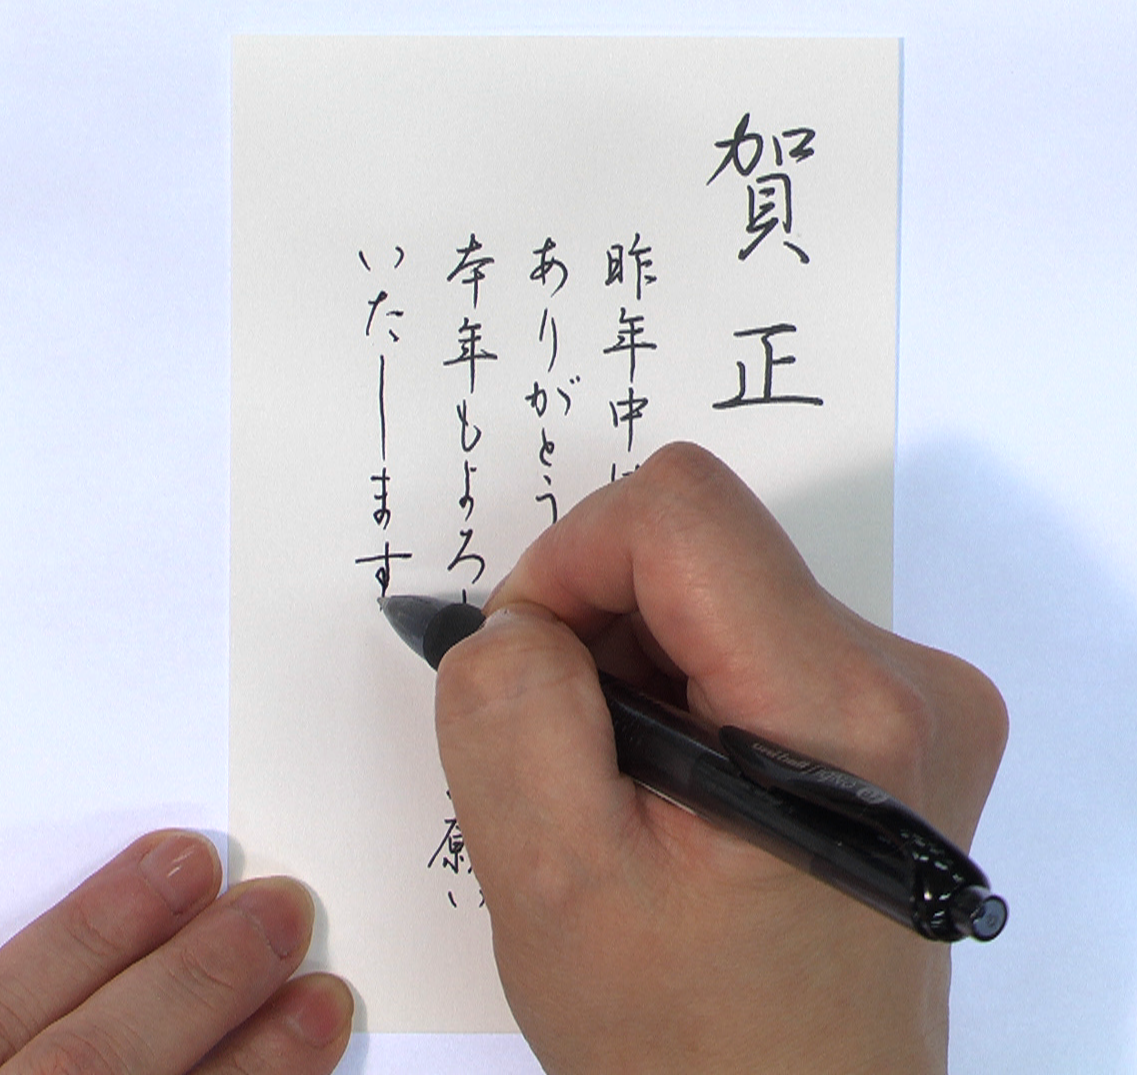 賀正
昨年中は
ありがとう
本年もよろし
願い
いたします
uni-ball Signo